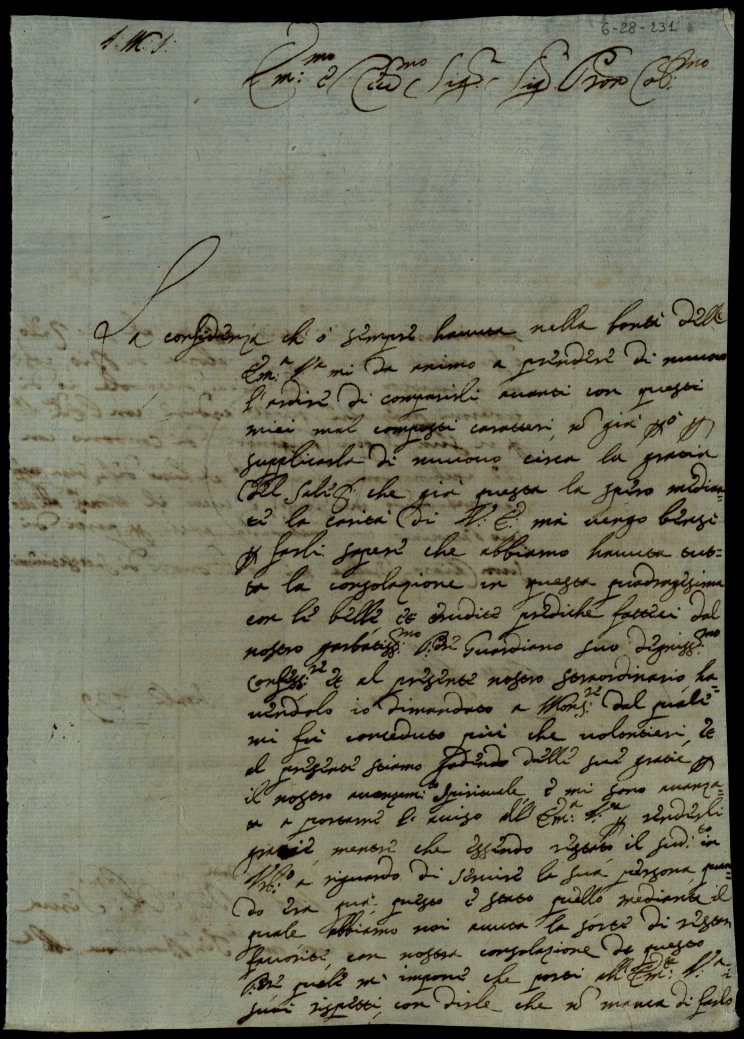 6-28-231
J. M. J.
Em:mo e Rev:mo Sig.r Sig.r Pron Col:mo
La confidenza ch'ò sempre havuta nella bontà dell'
Em:a V:a mi da animo a prendere di nuovo
l'ardire di comparirli avanti con questi
miei mal composti caratteri, nõ già p
supplicarla di nuovo circa la gratia
del che già questa la spero median=
te la carità di V: E: mà vengo bensi
p farli sapere che abbiamo havuta tut=
ta la consolazione in questa quadragesima
con le belle et erudite prediche fatteci dal
nostro garbatiss:mo P:re Guardiano suo degniss:mo
Confess:re et al presente nostro straordinario ha=
vendolo io dimandato a Mons:re dal quale
mi fu conceduto più che volontieri, et
al presente stiamo godendo delle sue gratie p
il nostro avanzam:to spirituale, e mi sono avanza=
ta a portarne l'aviso all'Em:a V:ra p renderli
gratie mentre che essendo restato il sud:to in
à riguardo di servire la sua persona quan=
do era qua, questo è stato quello mediante il
quale abbiamo noi avuta la sorte di restar
favorite con nostra consolazione da questo
P:re quale m'impone che porti all'Em:a V:a i
suoi rispetti, con dirle che nõ manca di farlo